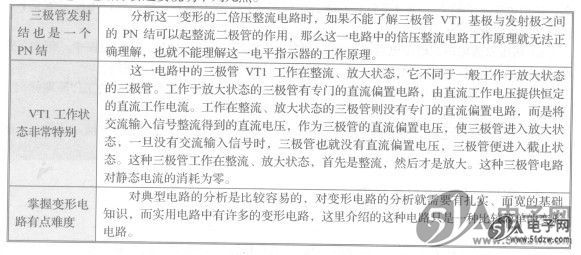 三极管发射
结也是一个
PN 结
分析这一变形的二倍压整流电路时，如果不能了解三极管 VT1 基极与发射极之间
的 PN 结可以起整流二极管的作用，那么这一电路中的倍压整流电路工作原理就无法正
确理解，也就不能理解这一电平指示器的工作原理。
VT1 工作状
态非常特别
这一电路中的三极管 VT1 工作在整流、放大状态，它不同于一般工作于放大状态
的三极管。工作于放大状态的三极管有专门的直流偏置电路，由直流工作电压提供恒定
的直流工作电流。工作在整流、放大状态的三极管则没有专门的直流偏置电路，而是将
交流输入信号整流得到的直流电压，作为三极管的直流偏置电压，使三极管进入放大状
态，一旦没有交流输入信号时，三极管也就没有直流偏置电压，三极管便进入截止状
态。这种三极管工作在整流、放大状态，首先是整流，然后才是放大。这种三极管电路
对静态电流的消耗为零。
掌握变形电
路有点难度
对典型电路的分析是比较容易的，对变形电路的分析就需要有扎实、而宽的基础
知识，而实用电路中有许多的变形电路，这里介绍的这种电路只是一种比较
电路。
电子网
www.51dzw.com